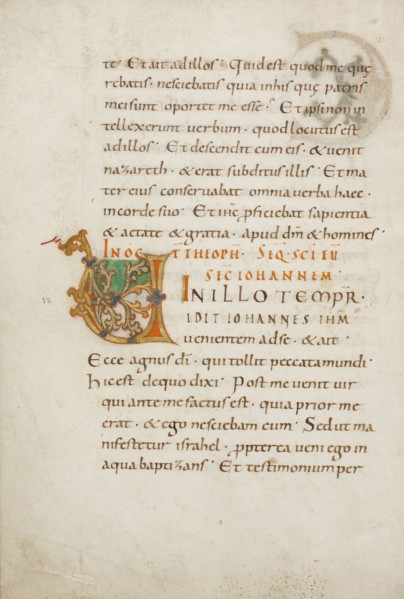 te. Et ait ad illos. Quid est quod me quę
rebatis. nesciebatis quia in his quę patris
mei sunt oportet me esse. Et ipsi non in
tellexerunt verbum. quod locutus est
ad illos. Et descendit cum eis. & venit
nazareth. & erat subditus illis. Et ma
ter eius conservabat omnia verba haec.
in corde suo. Et ih̄c p̄ficiebat sapientia
& aetate & gratia. apud dm̄ & homines.
IN OCT THEOPH. SIQ. SCI EU
SEC IOHANNEM.
IN ILLO TEMPR.
12
IDIT IOHANNES IHM̄
venientem ad se. & ait
Ecce agnus dī. qui tollit peccata mundi.
hic est de quo dixi. Post me venit vir
qui ante me factus est. quia prior me
erat. & ego nesciebam eum. Sed ut ma
nifestetur israhel. p̄pterea veni ego in
aqua baptizans. Et testimonium per